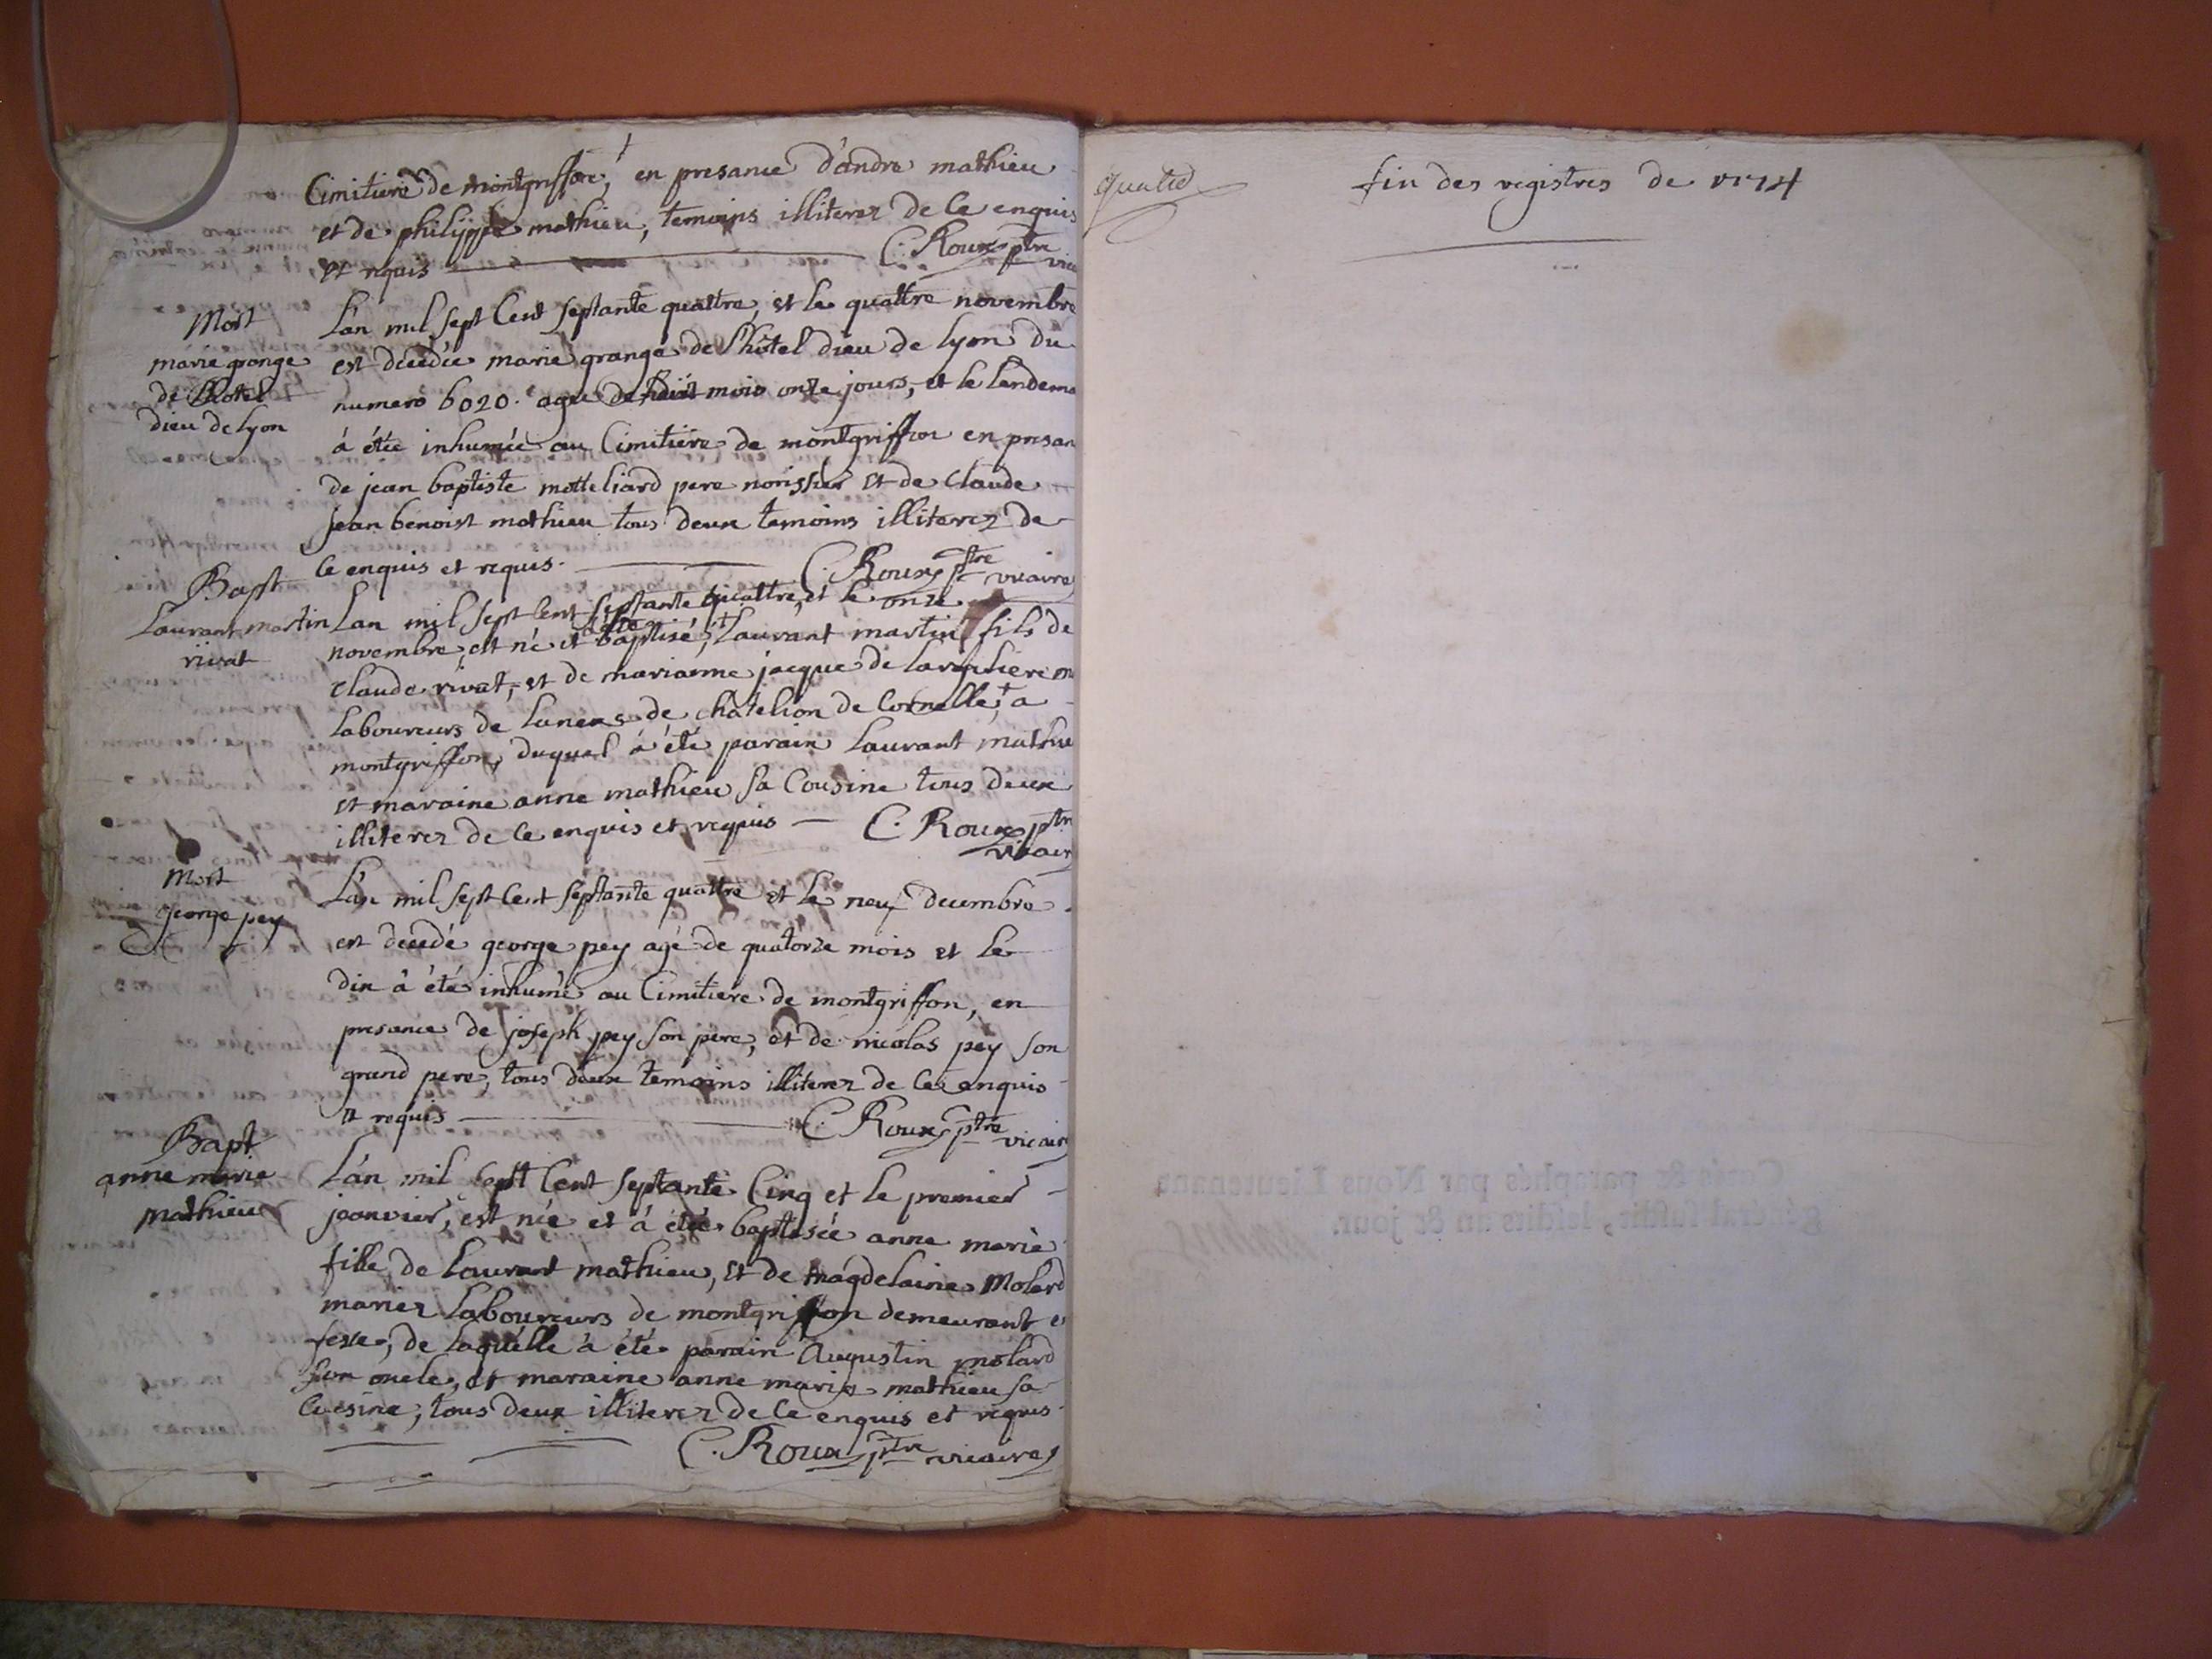 Cimitiere de montgriffon, en presance d'andre mathieu
et de philippe mathieu, temoins illiterez de ce enquis
et requis C. Roux ptre vic
Mort
marie grange
de l'hotel
dieu de lyon
L'an mil sept Cent septante quattre, et le quattre novembre
est décédée marie grange de l'hôtel dieu de lyon du
numero 6020. agée de mois onze jours, et le lendema
à étée inhumée au Cimitiere de montgriffon en presan
de jean baptiste motteliard pere norissier et de Claude
jean benoist mathieu tous deux temoins illiterez de
Ce enquis et requis. C. Roux ptre vicaire
Bapt
Laurant martin
rivat
L'an mil sept Cent septante quattre, et le onze
novembre, est né et a été baptisé, Laurant martin fils de
Claude rivat, et de marianne jacque de
Laboureurs de de châtelion de Cornelle, a
montgriffon, duquel à été parain Laurant mathie
et maraine anne mathieu sa Cousine tous deux
illiterez de Ce enquis et requis C. Roux ptre
vicair
Mort
george pey
L'an mil sept Cent septante quattre et le neuf decembre
est decedé george pey agé de quatorze mois et le
dix à été inhumé au Cimitiere de montgriffon, en
presance de joseph pey son pere, et de nicolas pey son
grand pere, tous deux temoins illiterez de Ce enquis
et requis C. Roux ptre vicair
Bapt
anne marie
mathieu
L'an mil sept Cent septante Cinq et le premier
jeanvier, est née et à étée baptisée anne marie
fille de Laurant mathieu, et de magdelaine Molard
mariez Laboureurs de montgriffon demeurant
de laquelle à été parain Augustin molard
son oncle, et maraine anne marie mathieu sa
Cousine, tous deux illiterez de Ce enquis et requis
C. Roux ptre vicaire
fin des registres de 1774
Cotés & paraphés par Nous Lieutenant
général susdit, lesdits an & jour.